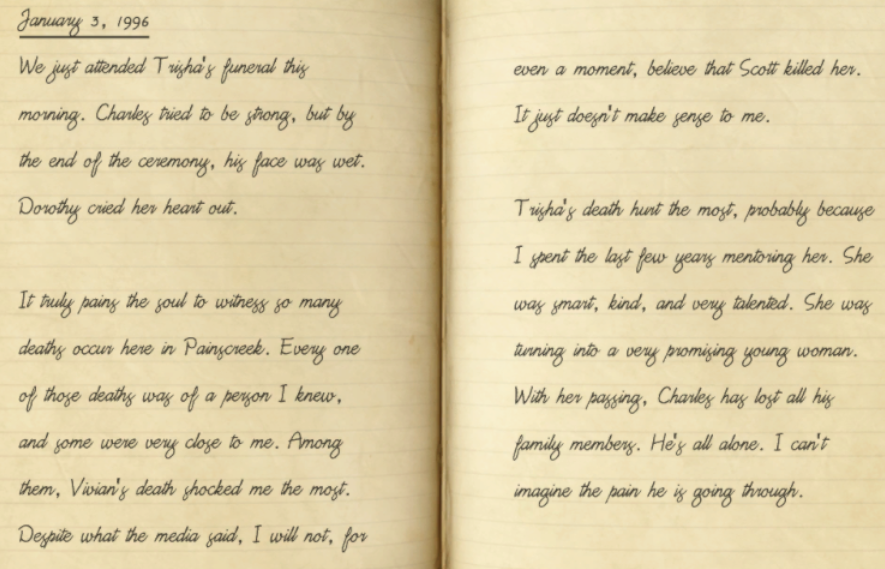 January 3, 1996
We just attended Trisha's funeral this
morning. Charles tried to be strong, but by
the end of the ceremony, his face was wet.
Dorothy cried her heart out.
It truly pains the soul to witness so many
deaths occur here in Painscreek. Every one
of those deaths was of a person I knew,
and some were very close to me. Among
them, Vivian's death shocked me the most.
Despite what the media said, I will not, for
even a moment, believe that Scott killed her.
It just doesn't make sense to me.
Trisha's death hurt the most, probably because
I spent the last few years mentoring her. She
was smart, kind, and very talented. She was
turning into a very promising young woman.
With her passing, Charles has lost all his
family members. He's all alone. I can't
imagine the pain he is going through.